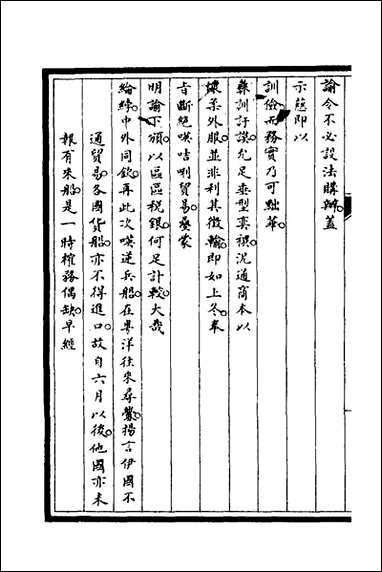 諭令不必設法購辦蓋
示慈即以
訓儉而務實乃可黜華
彝訓訏謨允足垂型奕禩況通商本以
懷柔外服並非利其徵輸即如上冬奉
旨斷絕㗆咭唎貿易疊蒙
明諭下頒以區區稅銀何足計較大哉
綸綍中外同欽再此次㗆逆兵船在粵洋往來尋釁揚言伊國不
通貿易各國貨船亦不得進口故自六月以後他國亦未
報有來船是一時榷務偶缺早經